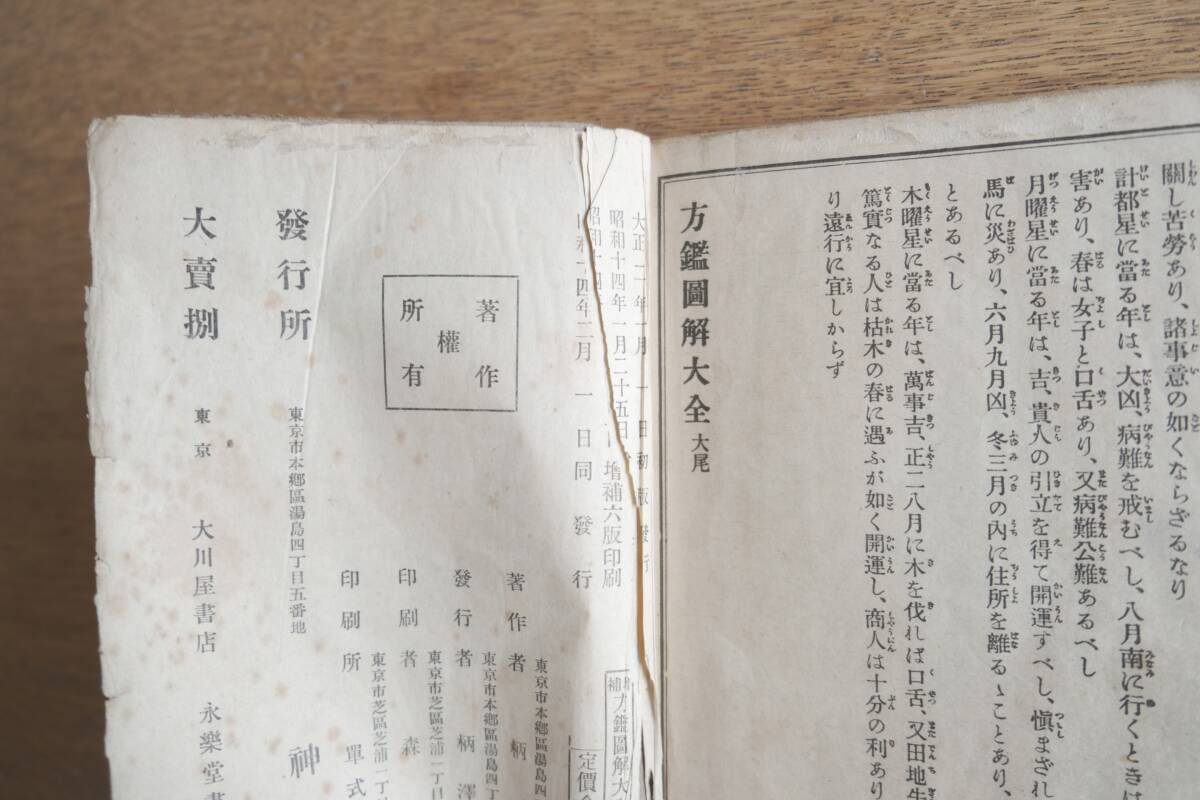 關し苦勞あり、諸事意の如くならざるなり
計都星に當る年は、大凶、病難を戒むべし、八月南に行くときは
害あり、春は女子と口舌あり、又病難公難あるべし
月曜星に當る年は、吉、貴人の引立を得て開運すべし、愼まざれ
馬に災あり、六月九月凶、冬三月の內に住所を離るゝことあり、
とあるべし
木曜星に當る年は、萬事吉、正二八月に木を伐れば口舌、又田地
篤實なる人は枯木の春に遇ふが如く開運し、商人は十分の利あり
り遠行に宜しからず
方鑑圖解大全 大尾
大正二年一月一日初版發行
昭和十四年一月二十五日增補六版印刷
昭和十四年二月一日同發行
補方鑑圖解大
定價
著作
權
所有
東京市本鄕區湯島四
著作者 柄
東京市本鄕區湯島四丁
發行者 柄澤
東京市芝區芝浦一丁目
印刷者 森
東京市芝區芝浦一丁目
印刷所 單式
發行所 東京市本鄕區湯島四丁目五番地 神
大賣捌 東京 大川屋書店 永樂堂書